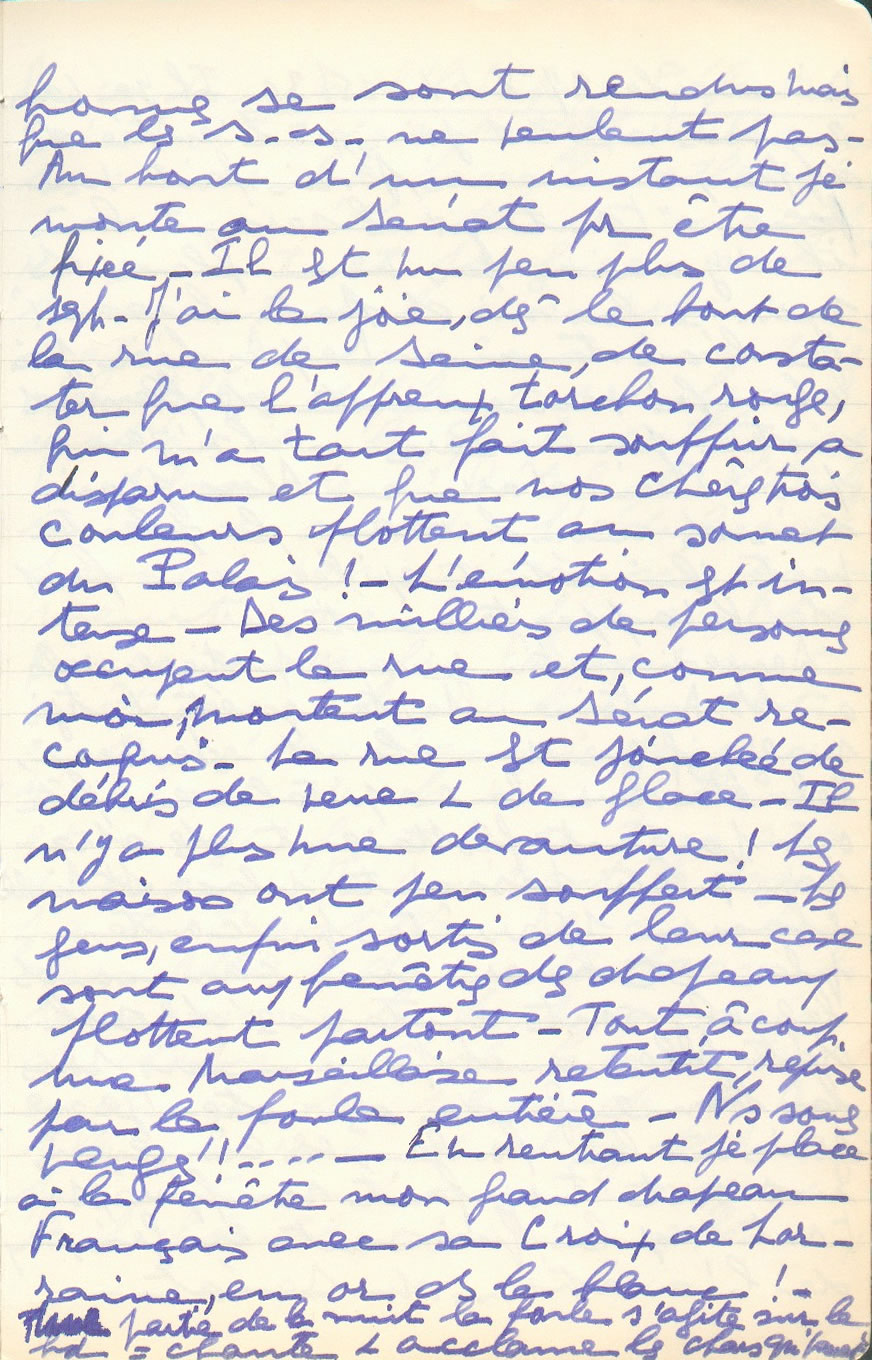 homes se sont rendus mais
que les S.-S.- ne veulent pas-
Au bout d'un instant je
monte au Sénat pr être
fixé - Il est un peu plus de
19h - J'ai la joie, dès le bout de
la rue de Seine, de consta-
ter que l'affreux torchon rouge,
qui m'a tant fait souffrir a
disparu et que nos chères trois
couleurs flottent au sommet
du Palais ! - L'émotion est in-
tense - Des milliers de personnes
occupent la rue et, comme
moi, montent au Sénat re-
conquis - La rue est jonchée de
débris de verre & de glace - Il
n'y a plus une devanture ! Les
maisons ont peu souffert - Les
gens, enfin sortis de leur cave
sont aux fenêtres des drapeaux
flottent partout - Tout à coup
une Marseillaise retentit, reprise
par la foule entière - Ns sommes
vengés !! .... - En rentrant je place
à la fenêtre mon grand drapeau
Français avec sa Croix de Lor-
raine, en or ds le blanc ! -
partie de la nuit la foule s'agite sur le
bd = chante & acclame les chars qui passent